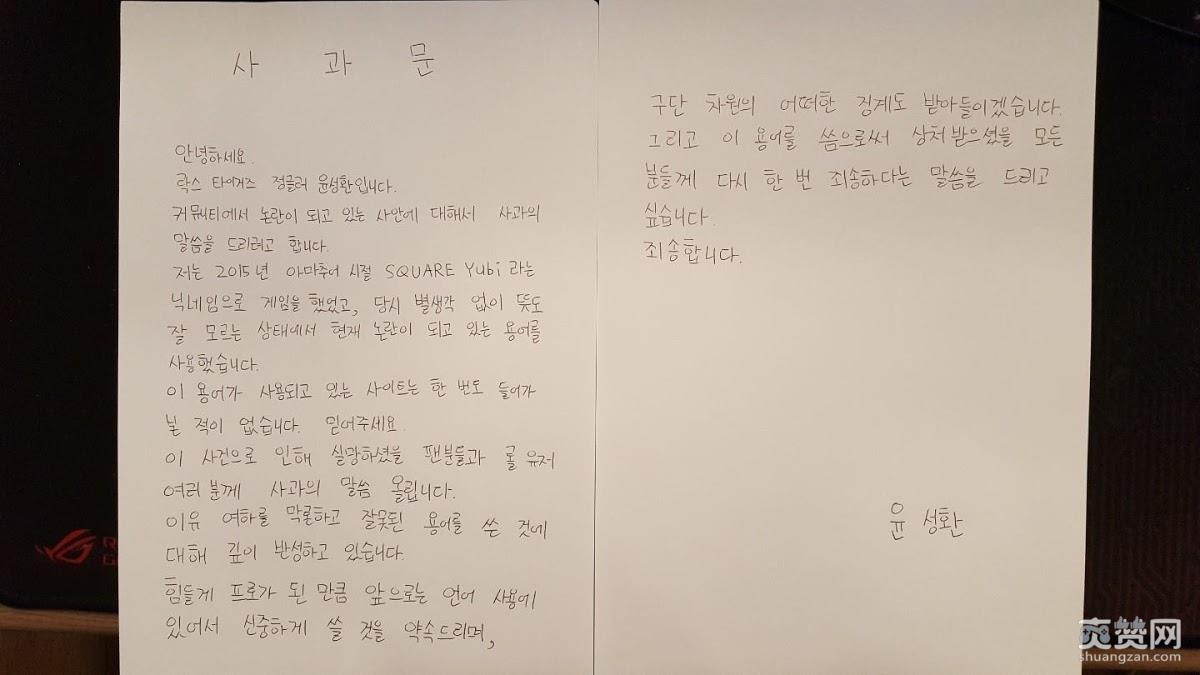 사 과 문
안녕하세요.
락스 타이거즈 정글러 윤성환입니다.
커뮤니티에서 논란이 되고 있는 사안에 대해서 사과의
말씀을 드리려고 합니다.
저는 2015년 아마추어 시절 SQUARE Yubi 라는
닉네임으로 게임을 했었고, 당시 별생각 없이 뜻도
잘 모르는 상태에서 현재 논란이 되고 있는 용어를
사용했습니다.
이 용어가 사용되고 있는 사이트는 한 번도 들어가
본 적이 없습니다. 믿어주세요.
이 사건으로 인해 실망하셨을 팬분들과 롤 유저
여러분께 사과의 말씀 올립니다.
이유 여하를 막론하고 잘못된 용어를 쓴 것에
대해 깊이 반성하고 있습니다.
힘들게 프로가 된 만큼 앞으로는 언어 사용에
있어서 신중하게 쓸 것을 약속드리며,
구단 차원의 어떠한 징계도 받아들이겠습니다.
그리고 이 용어를 씀으로써 상처 받으셨을 모든
분들께 다시 한 번 죄송하다는 말씀을 드리고
싶습니다.
죄송합니다.
윤 성환
爽赞网
shuangzan.com